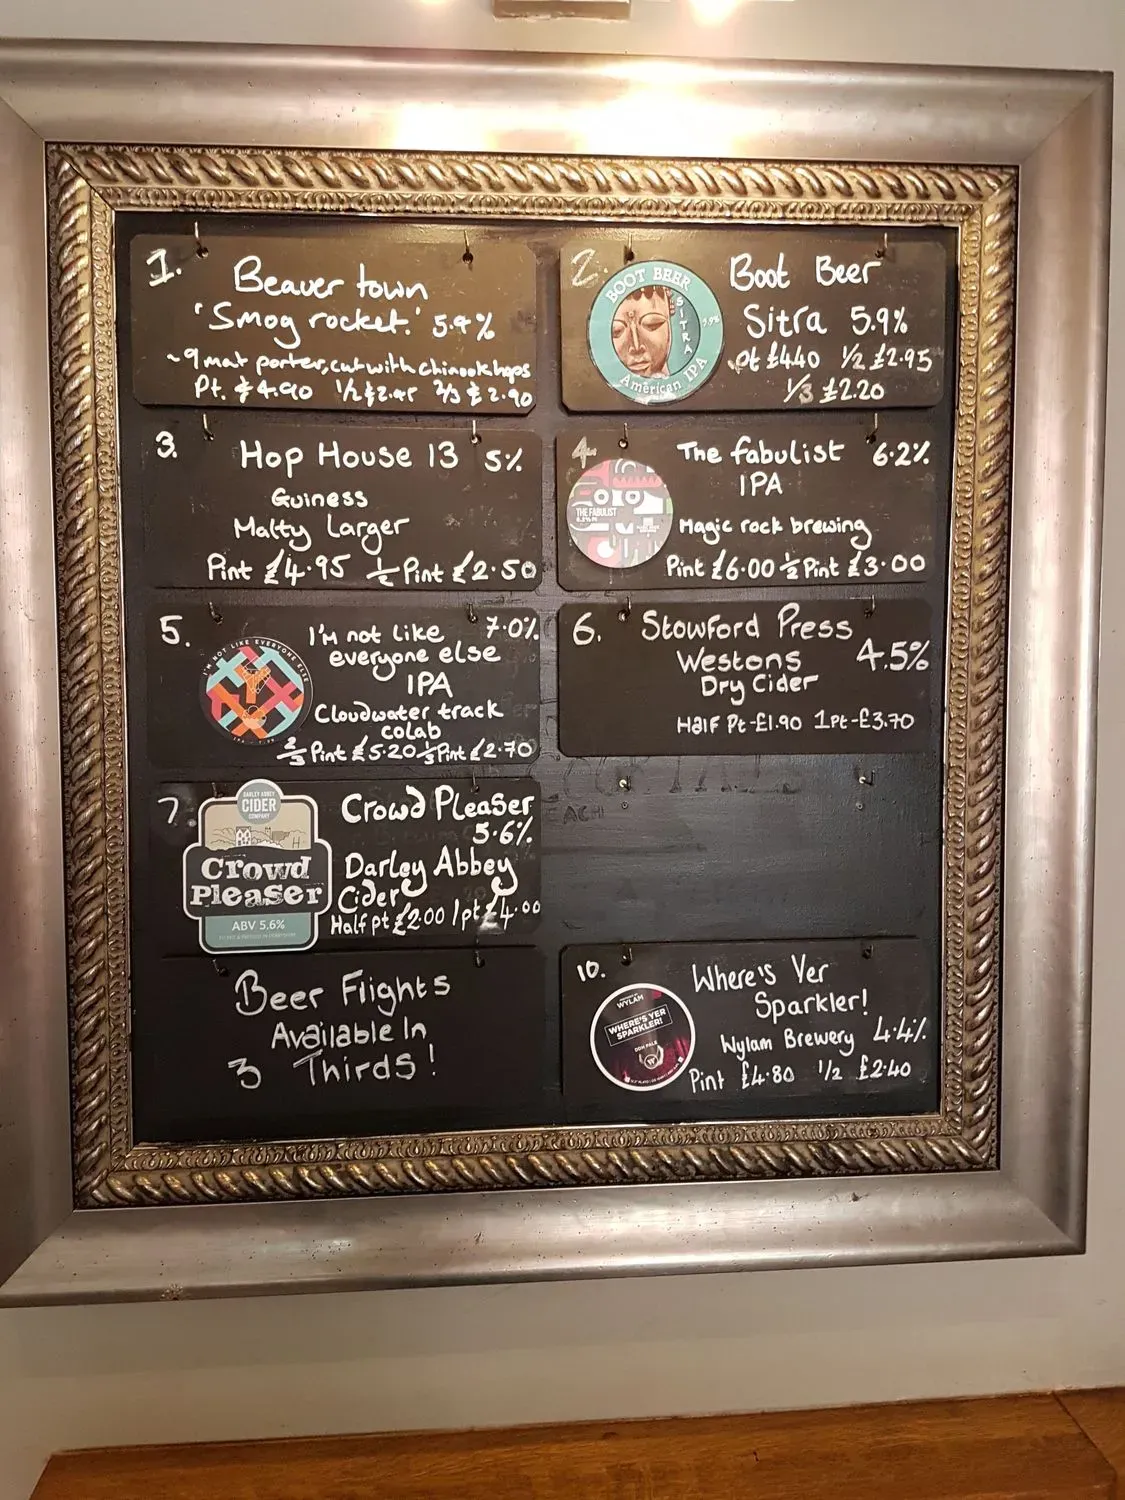 1.
Beaver town
'Smog rocket.' 5.4%
~9 malt porter, cut with chinook hops
Pt. £4.90 1/2 £2.45 2/3 £2.90
2.
BOOT BEER
SITRA
5.9%
American IPA
Boot Beer
Sitra 5.9%
pt £4.40 1/2 £2.95
1/3 £2.20
3.
Hop House 13 5%
Guiness
Malty Larger
Pint £4.95 1/2 Pint £2.50
4.
THE FABULIST
The fabulist 6.2%
IPA
Magic rock brewing
Pint £6.00 1/2 Pint £3.00
5.
I'M NOT LIKE EVERYONE ELSE
I'M not like 7.0%
everyone else
IPA
Cloudwater track
colab
2/3 Pint £5.20 1/3 Pint £2.70
6.
Stowford Press
Westons 4.5%
Dry Cider
Half Pt-£1.90 1Pt-£3.70
7.
DARLEY ABBEY
CIDER
COMPANY
Crowd
Pleaser
ABV 5.6%
Crowd Pleaser
5.6%
Darley Abbey
Cider
Half pt £2.00 / pt £4.00
EACH
Beer Flights
Available In
3 Thirds!
10.
WYLAM
WHERE'S YER
SPARKLER!
DDH PALE
Where's Yer
Sparkler!
Wylam Brewery 4.4%
Pint £4.80 1/2 £2.40